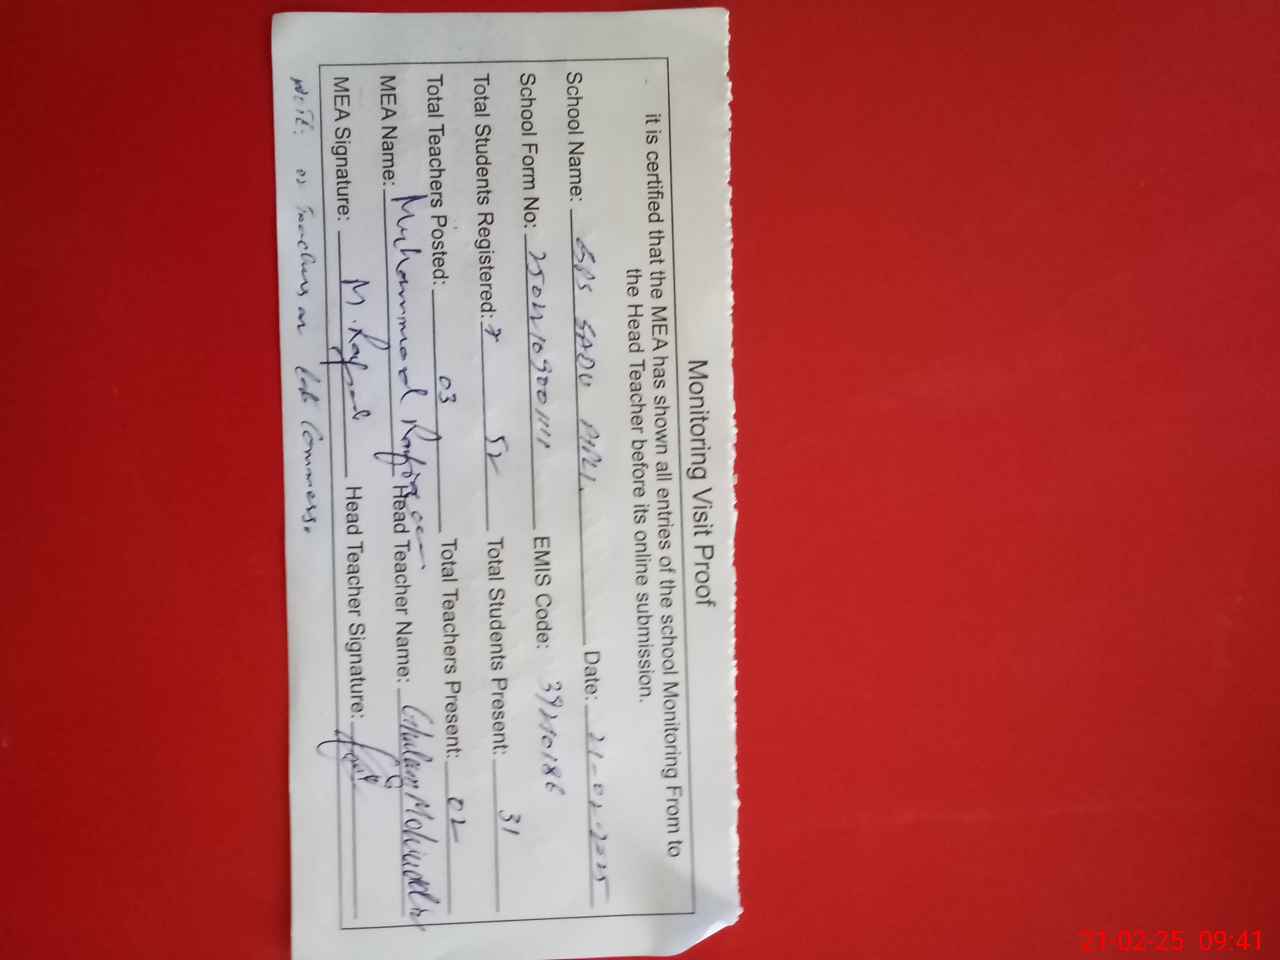 Monitoring Visit Proof
it is certified that the MEA has shown all entries of the school Monitoring From to
the Head Teacher before its online submission.
School Name: GPS SADU Date: 21-02-2025
School Form No: EMIS Code: 39210186
Total Students Registered: 52 Total Students Present: 31
Total Teachers Posted: 03 Total Teachers Present: 02
MEA Name: Muhammad Head Teacher Name: Ghulam
MEA Signature: Head Teacher Signature:
Note: 02 Teachers are late Commers.
21-02-25 09:41